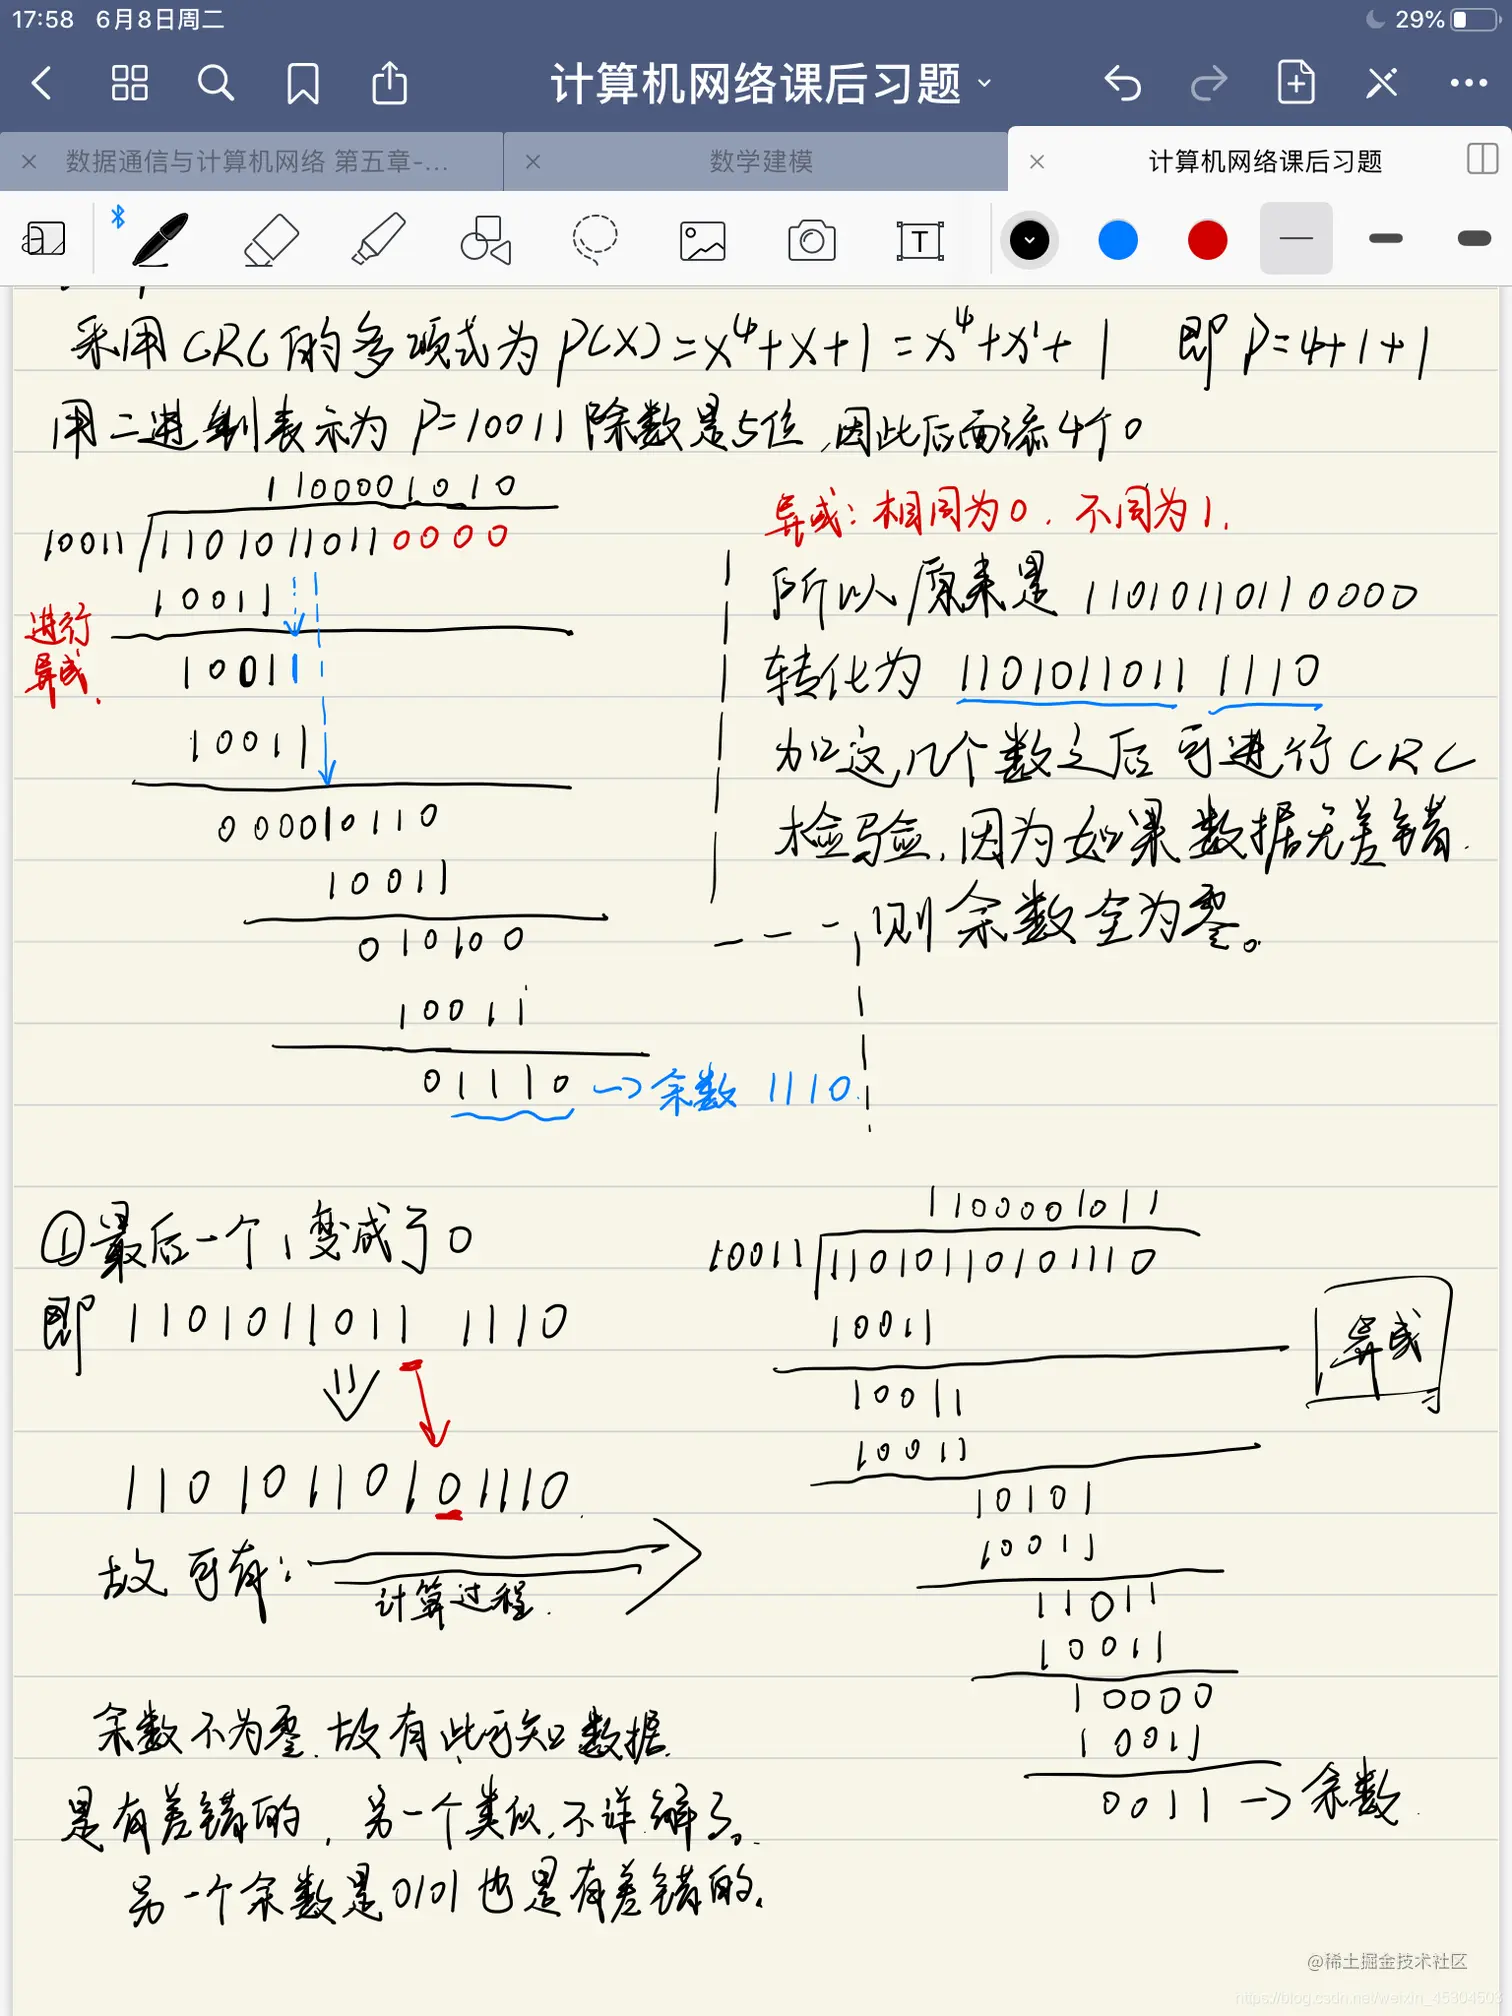 17:58 6月8日周二
29%
计算机网络课后习题
数据通信与计算机网络 第五章-...
数学建模
计算机网络课后习题
T
采用CRC的多项式为P(X)=X⁴+X+1=X⁴+X¹+1 即P=4+1+1
用二进制表示为 P=10011 除数是5位,因此后面添4个0
1100001010
10011 11010110110000
10011
进行
异或.
10011
10011
000010110
10011
010100
10011
01110 → 余数 1110.
异或: 相同为0. 不同为1.
所以原来是 11010110110000
转化为 1101011011 1110
加这几个数之后可进行CRC
检验,因为如果数据无差错.
则余数全为零。
①最后一个1变成了0
即 1101011011 1110
11010110101110
故可有:
计算过程.
余数不为零.故有此可知数据.
是有差错的, 另一个类似,不详解了。
另一个余数是0101也是有差错的.
1100001011
10011 11010110101110
10011
10011
10011
10101
10011
11011
10011
10000
10011
0011 → 余数.
异或
@稀土掘金技术社区
https://blog.csdn.net/weixin_45304503